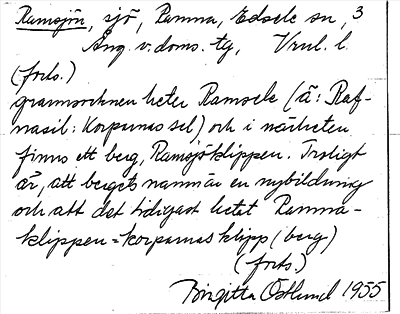 Ramsjön, sjö, Ramna, Edsele sn, 3
Ång. v. doms. tg, Vnul. l.
(forts.)
grannsocknen heter Ramsele (ä: Raf-
nasil: Korparnas sel) och i närheten
finns ett berg, Ramsjöklippen. Troligt
är, att bergets namn är en nybildning
och att det tidigast hetat Ramna-
klippen = korparnas klipp (berg)
(forts.)
Birgitta Östlund 1955